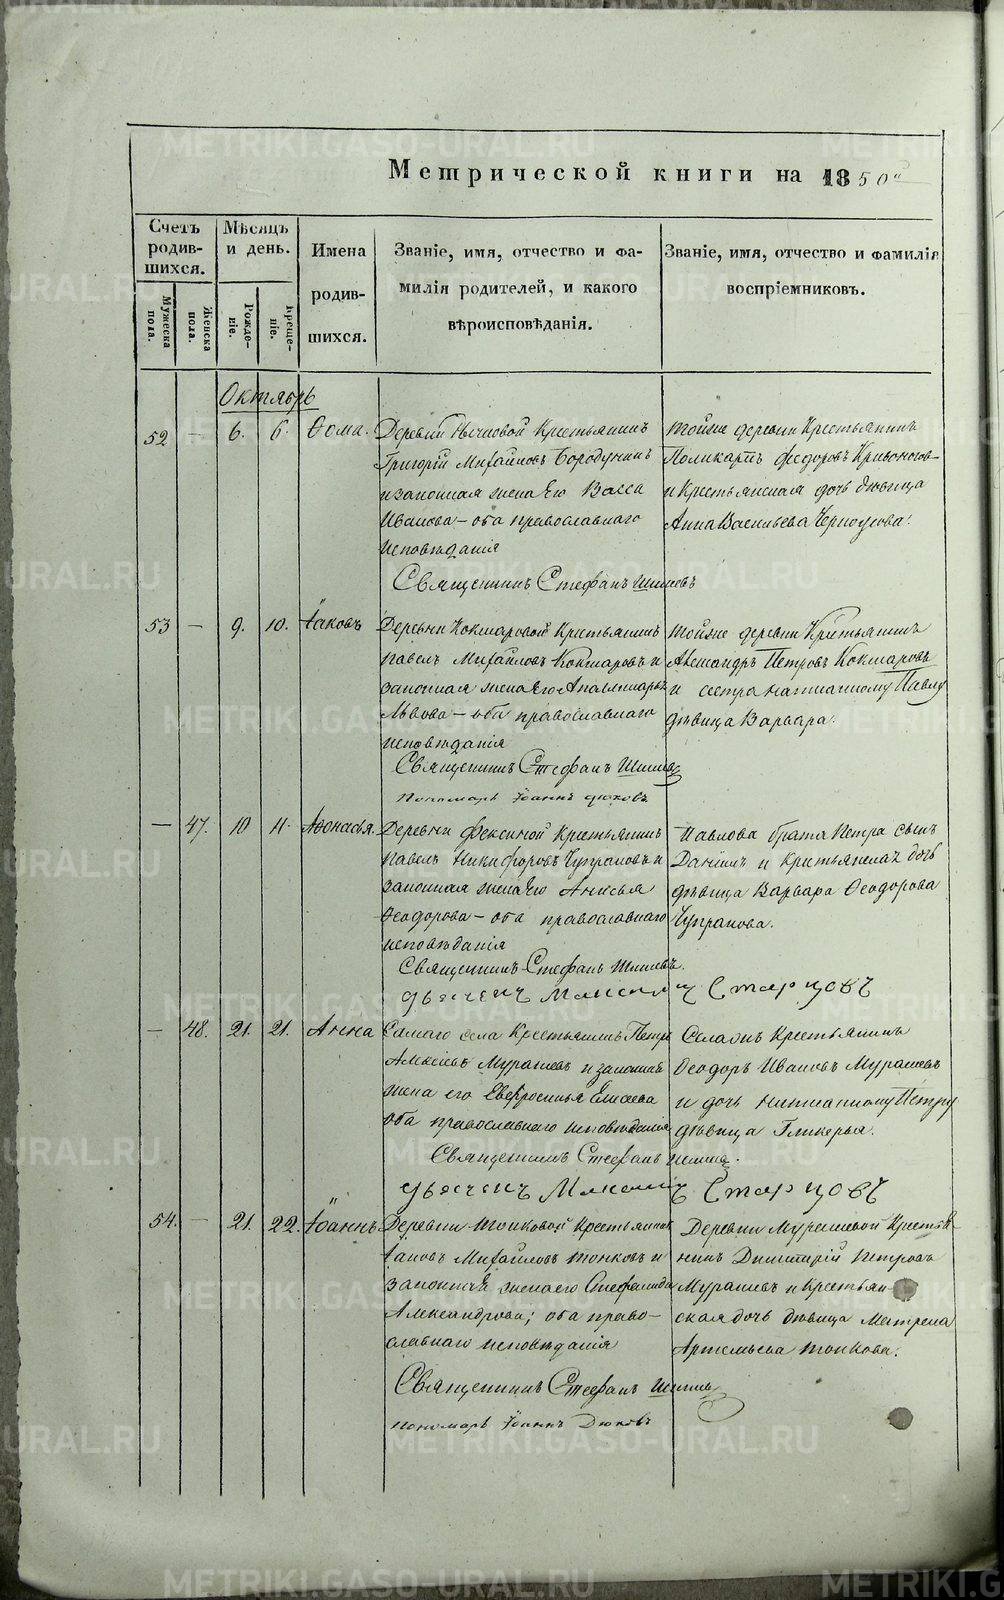 METRIKI.GASO-URAL.RU
Метрической книги на 1850й
Счетъ родив-шихся.
Мужеска пола.
Женска пола.
Мѣсяцъ и день.
Рожде-ніе.
Креще-ніе.
Имена родив-шихся.
Званіе, имя, отчество и фа-
милія родителей, и какого
вѣроисповѣданія.
Званіе, имя, отчество и фамилія
воспріемниковъ.
Октябрь
52 — 6. 6. Ѳома.
Деревни Крестьянинъ
Григорій Михайловъ Бородунинъ
и законная жена его Васса
Иванова — оба православнаго
исповѣданія
Тойже деревни Крестьянинъ
Поликарпъ Федоровъ Кривоногов
и Крестьянская дочь дѣвица
Анна Васильева Черноусова.
Священникъ Стефанъ Шишевъ
53 — 9. 10. Іаковъ
Деревни Кокшаровой Крестьянинъ
Павелъ Михайловъ Кокшаровъ и
законная жена его
Львова — оба православнаго
исповѣданія
Тойже деревни Крестьянинъ
Александръ Петровъ Кокшаровъ
и сестра написанному Павлу
дѣвица Варвара.
Священникъ Стефанъ
Пономарь Іоаннъ Дюковъ
— 47. 10 11. Аѳонасья.
Деревни Фексиной Крестьянинъ
Павелъ Никифоровъ Чупраковъ и
законная жена его Анисья
Ѳеодорова — оба православнаго
исповѣданія
Павлова брата Петра сынъ
Даніилъ и Крестьянская дочь
дѣвица Варвара Ѳеодорова
Чупракова.
Священникъ Стефанъ Шишевъ.
Дьячекъ Максимъ Старцовъ
— 48. 21. 21. Анна
Самаго села Крестьянинъ Петръ
Алексѣевъ Мурашевъ и законная
жена его Евфросинья Елисеева
оба православнаго исповѣданія
Села онъ Крестьянинъ
Ѳеодоръ Ивановъ Мурашевъ
и дочь написанному Петру
дѣвица Гликерья.
Священникъ Стефанъ
Дьячекъ Максимъ Старцовъ
54. — 21. 22. Іоаннъ
Деревни Тонковой Крестьянинъ
Іаковъ Михайловъ Тонковъ и
законная жена его Стефанида
Александрова; оба право-
славнаго исповѣданія
Деревни Мурашевой Крестья-
нинъ Димитрій Петровъ
Мурашевъ и Крестьян-
ская дочь дѣвица Матрена
Артемьева Тонкова.
Священникъ Стефанъ
Пономарь Іоаннъ Дюковъ